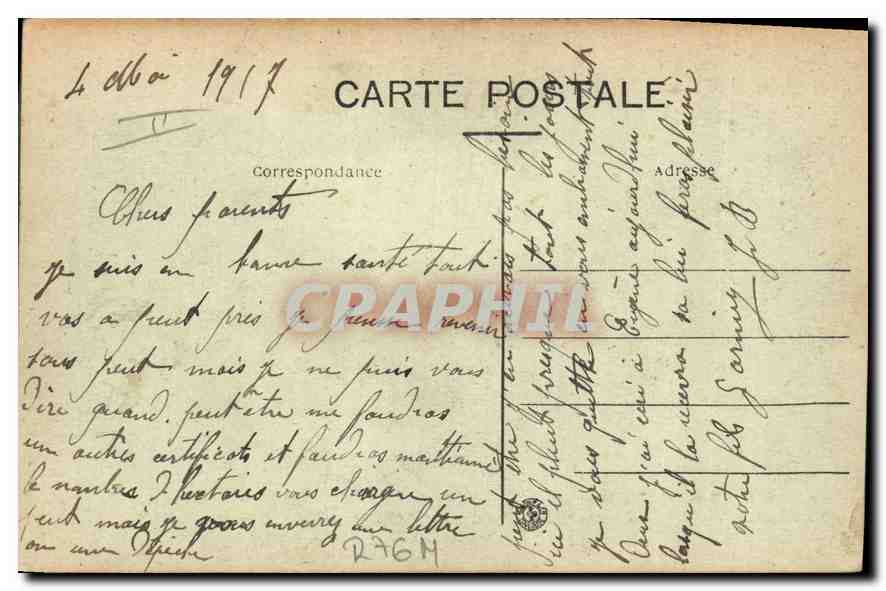 4 Mai 1917
CARTE POSTALE
Correspondance
Adresse
Chers parents
je suis en bonne santé tout
vas a peut pris je pense revenir
sous peut mais je ne puis vous
dire quand. peut être me faudras
un autres certificats et faudras
le nombre d'hectares vous un
peut mais je vous enverrez une lettre
ou une Dépêche
peut être j'en aurais pas besoin
ici il pleut presque tout les jours
je vous quitte en vous embrasent tout
Deux j'ai écri à Eugène aujourd'hui
lorsqu'il la recevra sa lui feras plaisir
votre fils J B
R76M
CRAPHIL